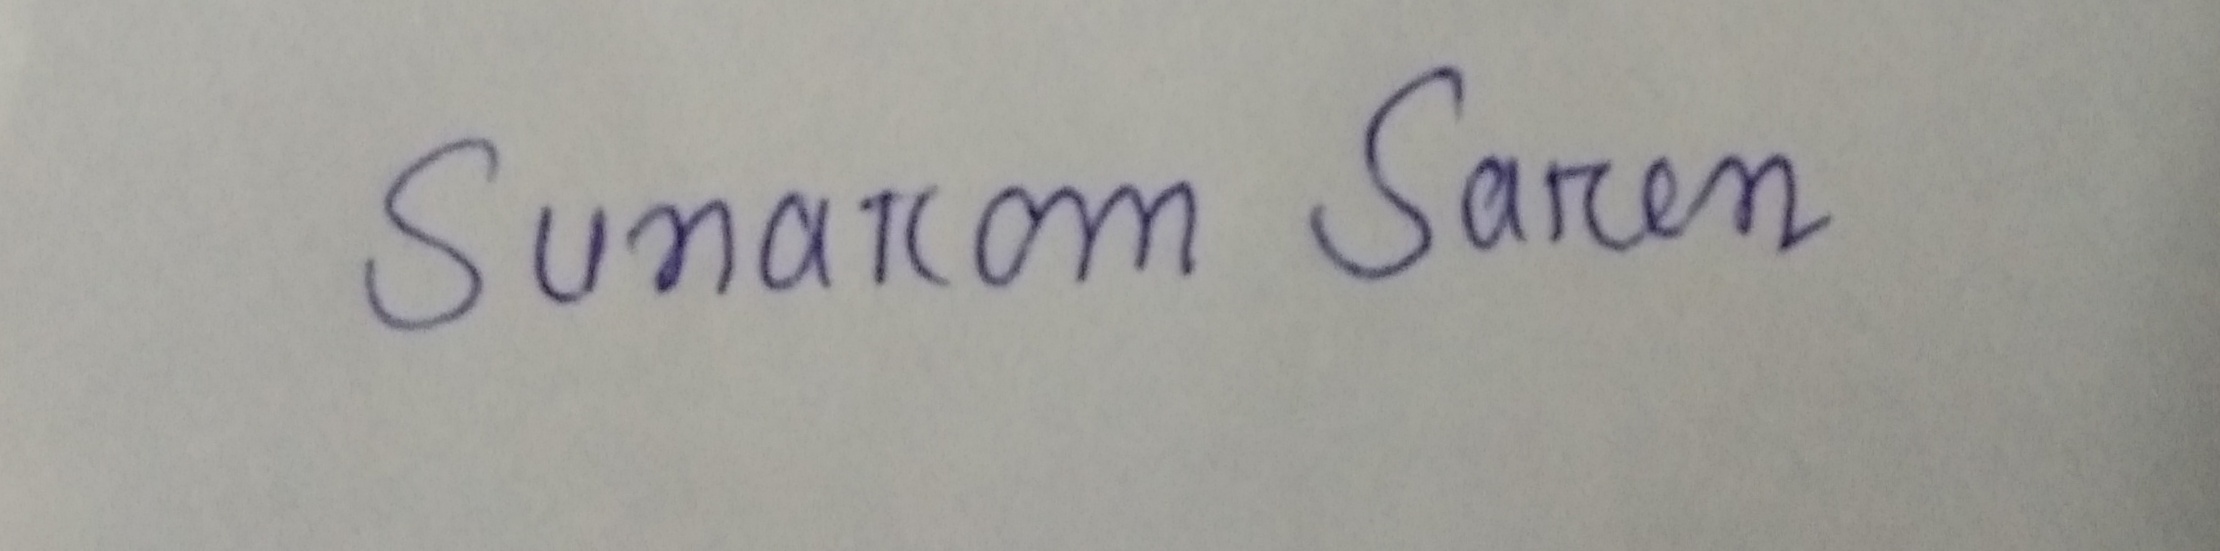 Sunarom Saren